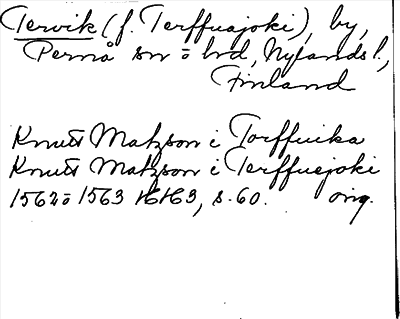 Tervik (f. Terffuajoki), by,
Pernå sn o hd, Nylands l.,
Finland
Knutt Matzson i Torffuika
Knutt Matzson i Terffuejoki
1562 o 1563 HH3, s. 60. orig.